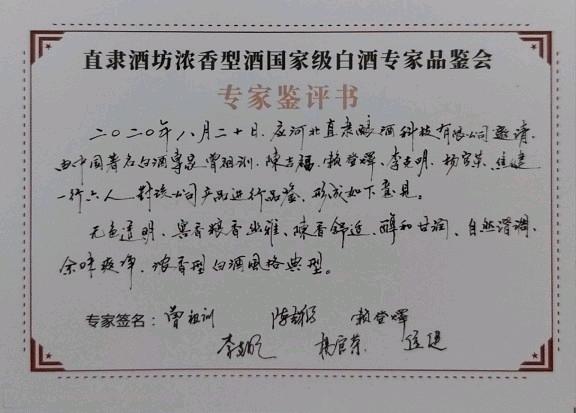 直隶酒坊浓香型酒国家级白酒专家品鉴会
专家鉴评书
二〇二〇年八月二十日,应河北直隶酿酒科技有限公司邀请,
由中国著名白酒专家曾祖训、陳吉福、赖登燡、李克明、杨官荣、焦健
一行六人,對該公司产品进行品鉴,形成如下意见。
无色透明、窖香粮香幽雅、陳香舒适、醇和甘润、自然谐调、
余味爽净、浓香型白酒風格典型。
专家签名:曾祖训 赖登燡
李克明 杨官荣